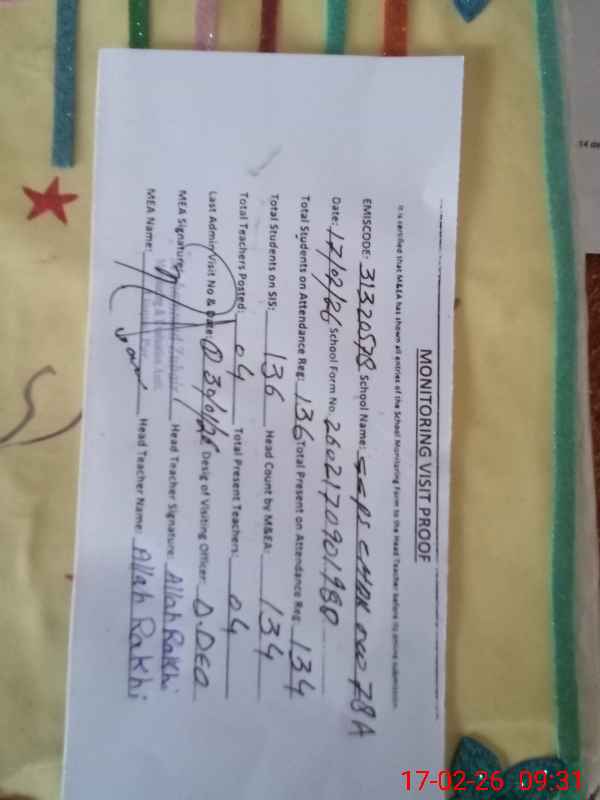 MONITORING VISIT PROOF
It is certified that M&EA has shown all entries of the School Monitoring Form to the Head Teacher before its online submission
EMISCODE: 31320578 School Name: 78A
Date: 17/02/26 School Form No. 2602170901980
Total Students on Attendance Reg: 136 Total Present on Attendance Reg: 134
Total Students on SIS: 136 Head Count by M&EA: 134
Total Teachers Posted: 04 Total Present Teachers: 04
Last Admin Visit No & Date: Desig of Visiting Officer: D.DEO
MEA Signature: Head Teacher Signature: Allah Rakhi
MEA Name: Head Teacher Name: Allah Rakhi
17-02-26 09:31